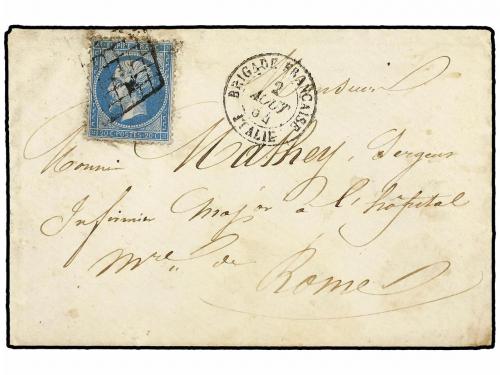 20 C. POSTES 20 C.
BRIGADE FRANÇAISE
2
AOUT
64
ITALIE
Monsieur
Monsieur Mathey, Sergent
Infirmier Major à l'hôpital
Mre de Rome